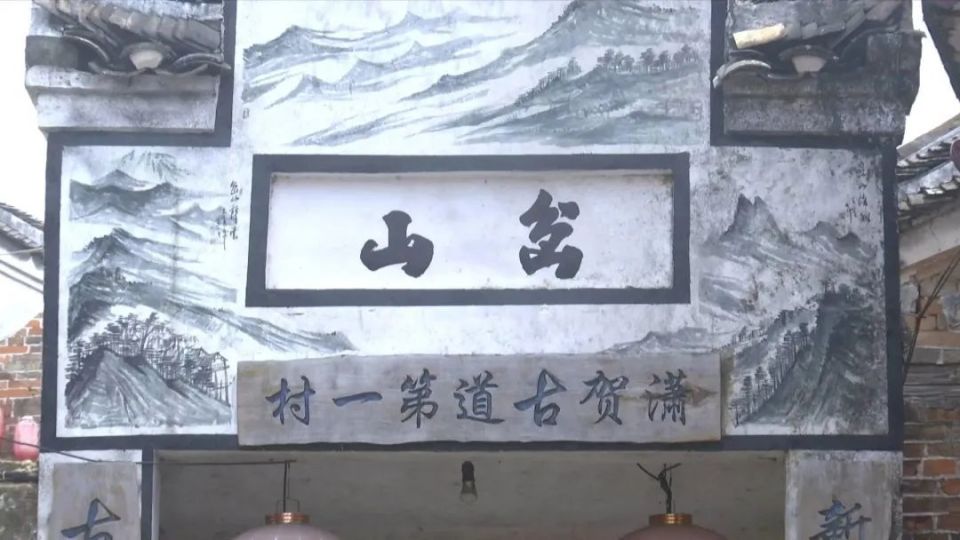 岔山
潇贺古道第一村
新
古